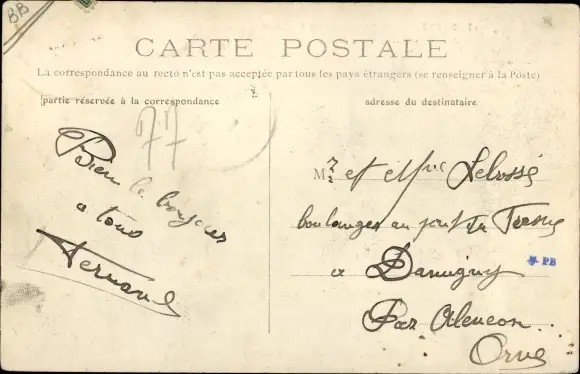 BB
CARTE POSTALE
La correspondance au recto n'est pas acceptée par tous les pays étrangers (se renseigner à la Poste)
partie réservée à la correspondance
77
Bien le bonjour
a tous
Fernand
adresse du destinataire
Mr et Mme Lebossé
boulanger au pont du Fresne
a Damigny
Par Alencon
Orne
PB